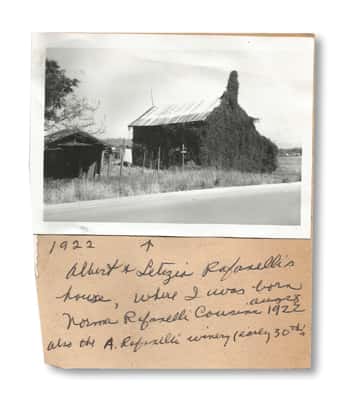 1922 ↑
Albert & Letizia Rafanelli's
house, where I was born
aug 28
Norma Rafanelli Cousins 1922
also the A. Rafanelli winery (early 30ths)